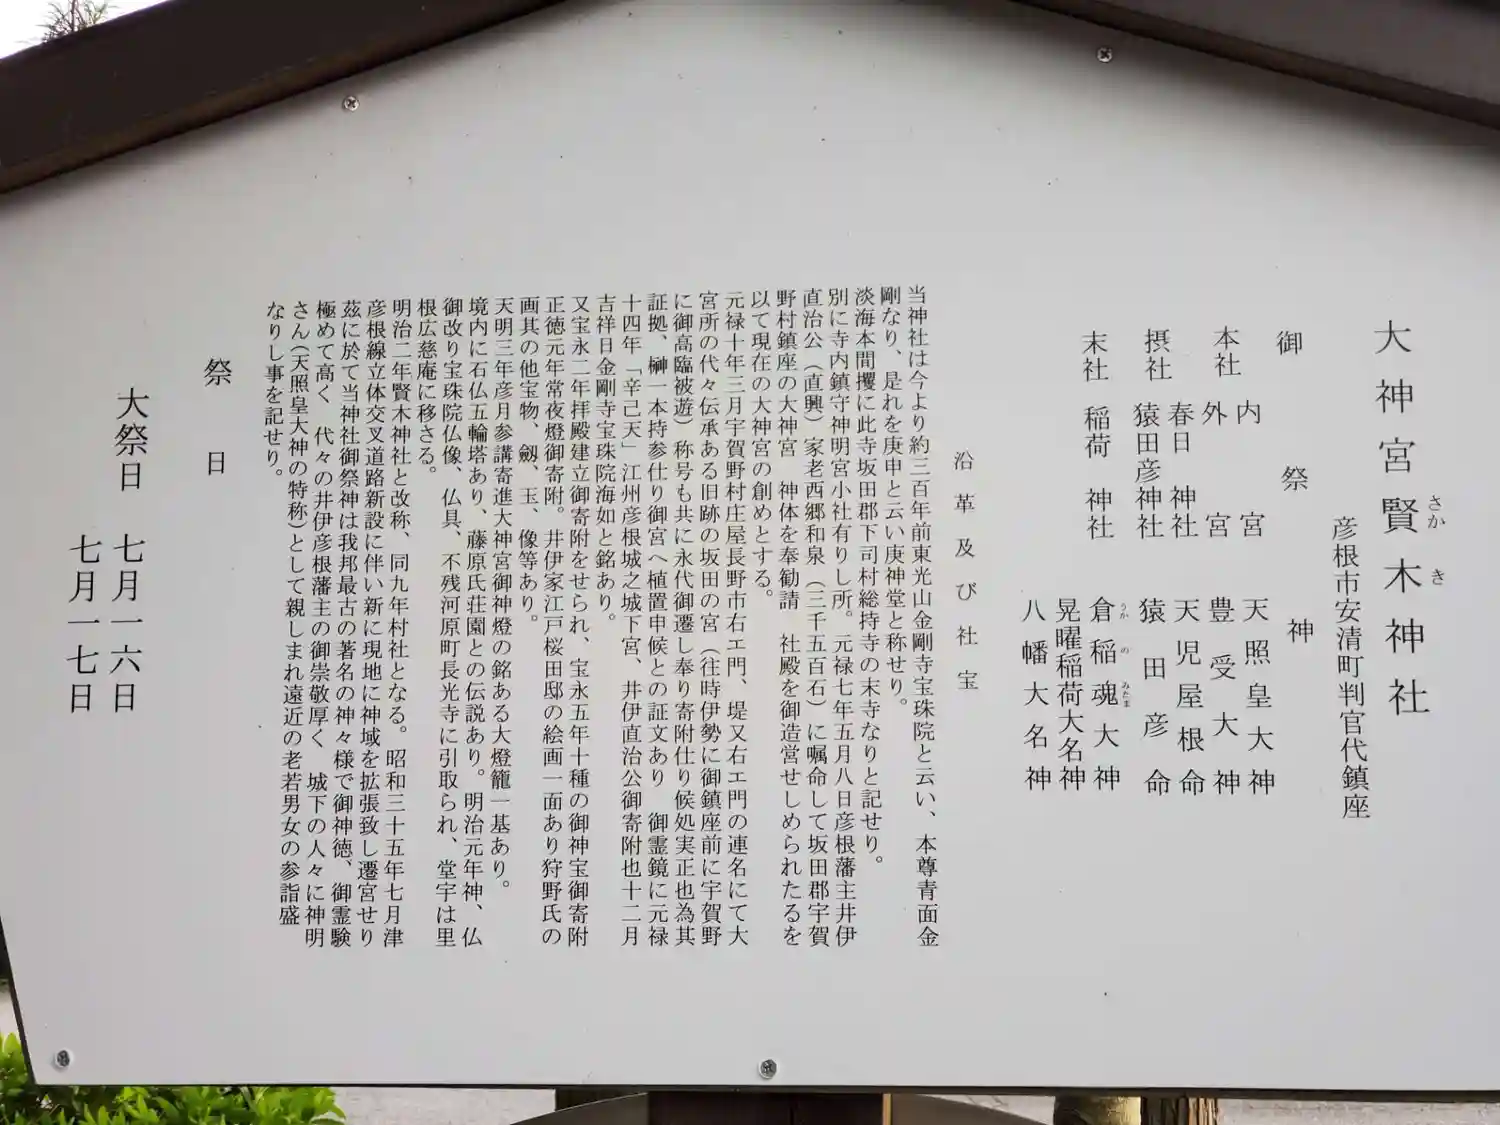 大神宮賢木神社
さか き
彦根市安清町判官代鎮座
御祭神
本社 内宮 天照皇大神
外宮 豊受大神
摂社 春日神社 天児屋根命
猿田彦神社 猿田彦命
末社 稲荷神社 倉稲魂大神
うか の みたま
晃曜稲荷大名神
八幡大名神
沿革及び社宝
当神社は今より約三百年前東光山金剛寺宝珠院と云い、本尊青面金
剛なり、是れを庚申と云い庚神堂と称せり。
淡海本間攫に此寺坂田郡下司村総持寺の末寺なりと記せり。
別に寺内鎮守神明宮小社有りし所。元禄七年五月八日彦根藩主井伊
直治公（直興）家老西郷和泉（三千五百石）に嘱命して坂田郡宇賀
野村鎮座の大神宮 神体を奉勧請 社殿を御造営せしめられたるを
以て現在の大神宮の創めとする。
元禄十年三月宇賀野村庄屋長野市右エ門、堤又右エ門の連名にて大
宮所の代々伝承ある旧跡の坂田の宮（往時伊勢に御鎮座前に宇賀野
に御高臨被遊）称号も共に永代御遷し奉り寄附仕り候処実正也為其
証拠、榊一本持参仕り御宮へ植置申候との証文あり 御霊鏡に元禄
十四年「辛己天」江州彦根城之城下宮、井伊直治公御寄附也十二月
吉祥日金剛寺宝珠院海如と銘あり。
又宝永二年拝殿建立御寄附をせられ、宝永五年十種の御神宝御寄附
正徳元年常夜燈御寄附。井伊家江戸桜田邸の絵画一面あり狩野氏の
画其の他宝物、劔、玉、像等あり。
天明三年彦月参講寄進大神宮御神燈の銘ある大燈籠一基あり。
境内に石仏五輪塔あり、藤原氏荘園との伝説あり。明治元年神、仏
御改り宝珠院仏像、仏具、不残河原町長光寺に引取られ、堂宇は里
根広慈庵に移さる。
明治二年賢木神社と改称、同九年村社となる。昭和三十五年七月津
彦根線立体交叉道路新設に伴い新に現地に神域を拡張致し遷宮せり
茲に於て当神社御祭神は我邦最古の著名の神々様で御神徳、御霊験
極めて高く 代々の井伊彦根藩主の御崇敬厚く 城下の人々に神明
さん（天照皇大神の特称）として親しまれ遠近の老若男女の参詣盛
なりし事を記せり。
祭日
大祭日 七月一六日
七月一七日